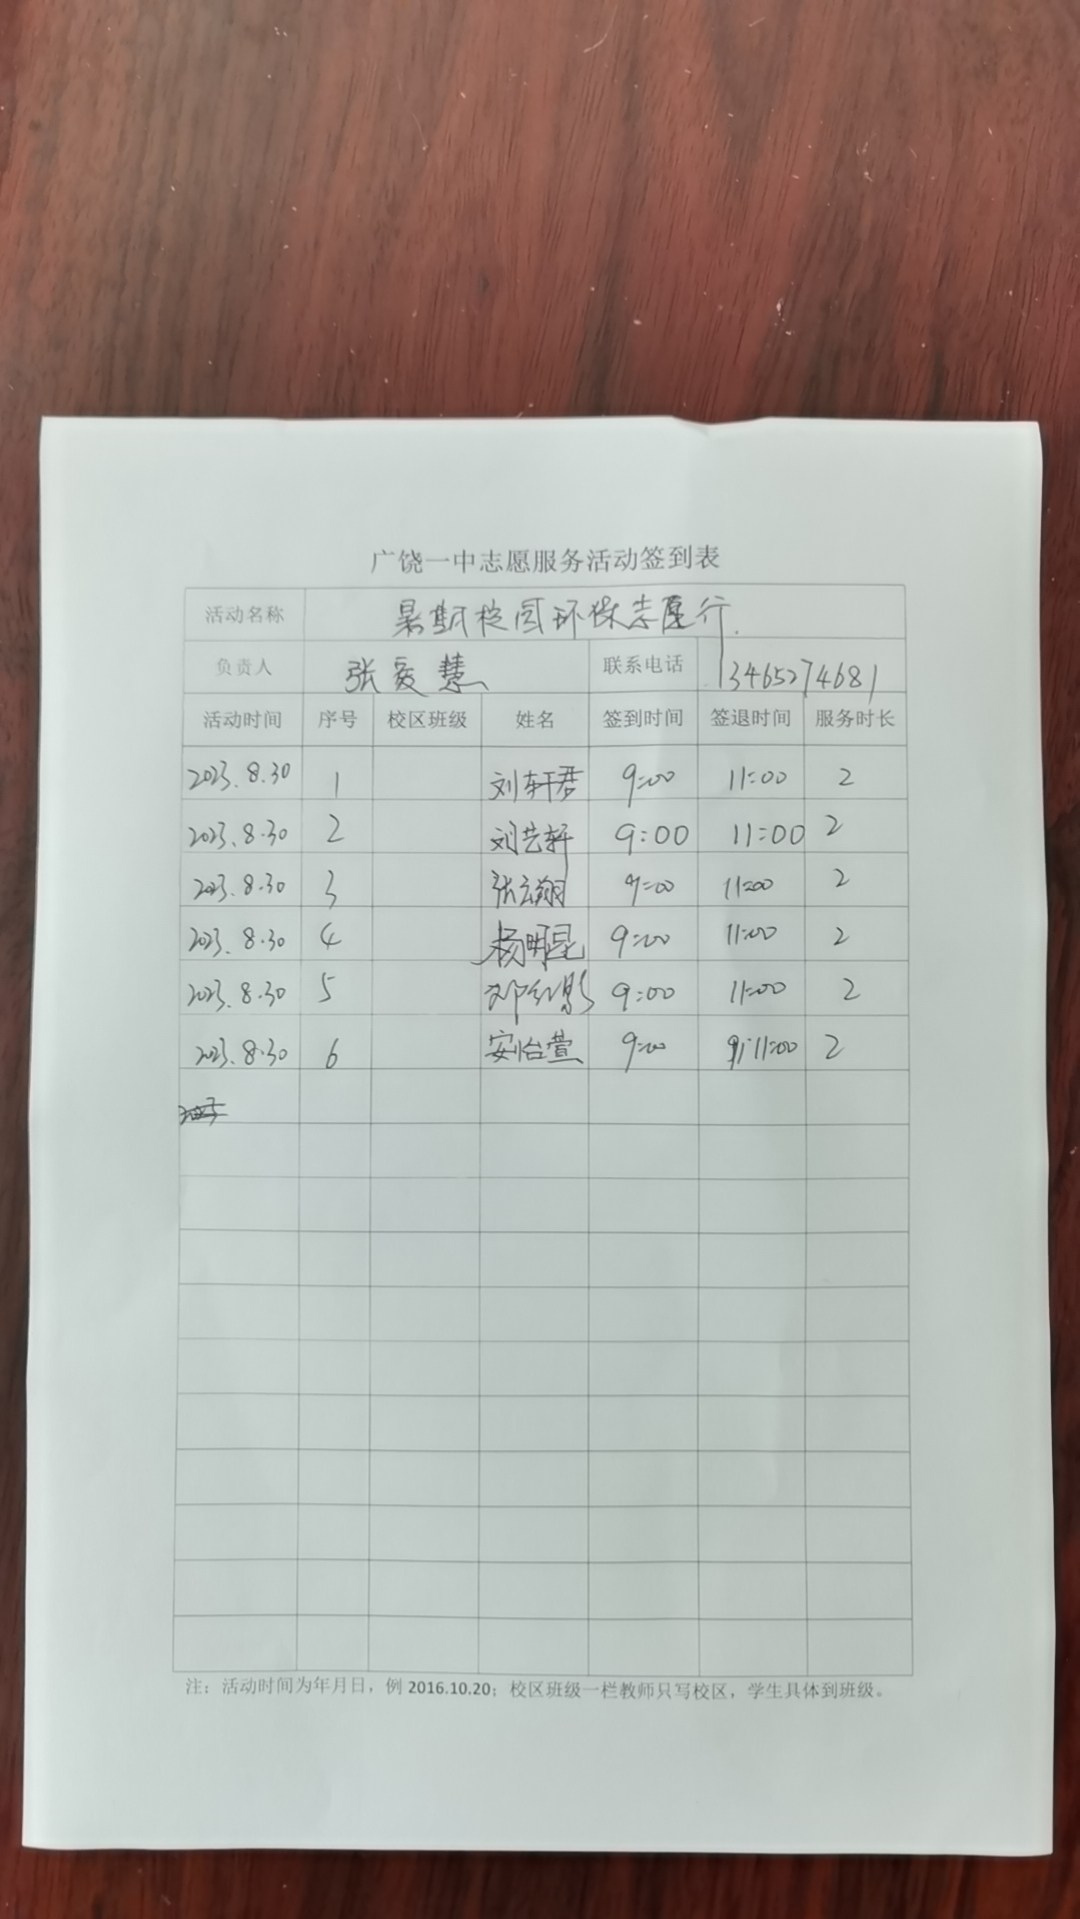 广饶一中志愿服务活动签到表
活动名称 暑期校园环保志愿行.
负责人 张爱慧 联系电话 13465274681
活动时间 序号 校区班级 姓名 签到时间 签退时间 服务时长
2023.8.30 1 刘轩君 9:00 11:00 2
2023.8.30 2 刘艺轩 9:00 11:00 2
2023.8.30 3 张云翔 9:00 11:00 2
2023.8.30 4 杨明昆 9:00 11:00 2
2023.8.30 5 邓红影 9:00 11:00 2
2023.8.30 6 安怡萱 9:00 11:00 2
注：活动时间为年月日，例 2016.10.20；校区班级一栏教师只写校区，学生具体到班级。